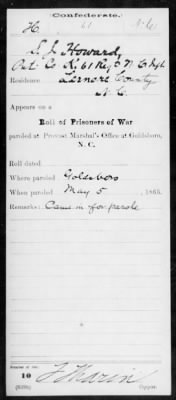 Confederate.
H 61 N.C.
S. J. Howard,
Pvt. Co K, 61 Reg't N. C. Inf
Residence Lenore County
N. C.
Appears on a
Roll of Prisoners of War
paroled at Provost Marshal's Office at Goldsboro,
N. C.
Roll dated
Where paroled Goldsboro
When paroled May 5, 1865.
Remarks: Came in for parole
Number of roll:
10
(639b) Copyist.